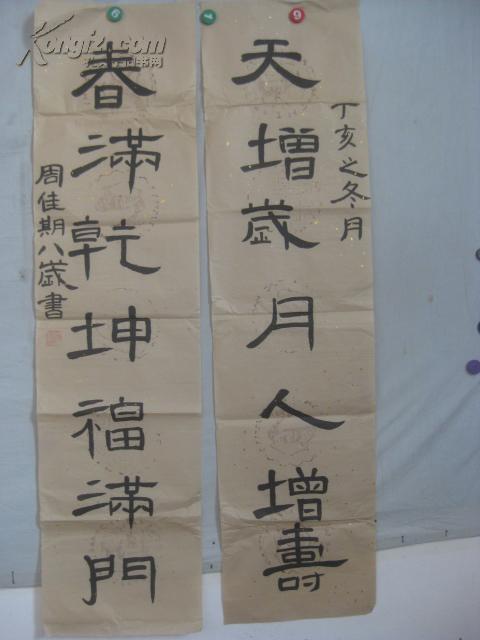 天增歲月人增壽
丁亥之冬月
春滿乾坤福滿門
周佳期八歲書
Kongfz.com
孔夫子旧书网